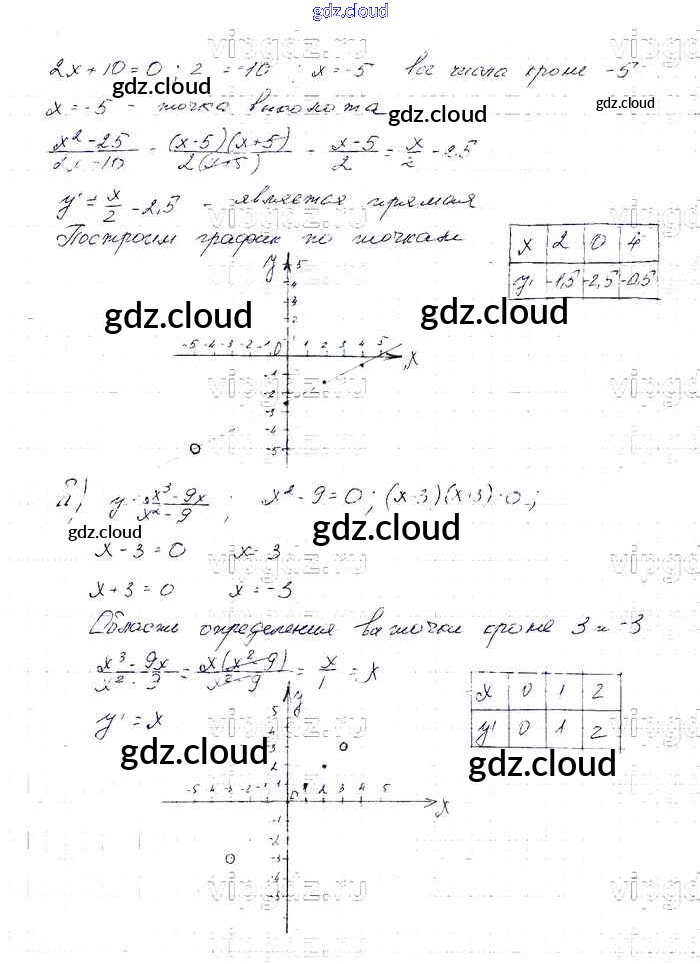 gdz.cloud
vipgdz.ru
2x+10=0 ; 2 = -10 ; x=-5 все числа кроме -5
gdz.cloud
x=-5 - точка выколота
gdz.cloud
gdz.cloud
x²-25 / 2x-10 - (x-5)(x+5) / 2(x+5) - x-5 / 2 = x/2 - 2.5
y' = x/2 - 2,5 - является прямая
Построим график по точкам
x 2 0 4
y' -1,5 -2,5 -0,5
gdz.cloud
gdz.cloud
y 5
4
3
2
-5 -4 -3 -2 -1 0 1 2 3 4 5 x
-1
-2
-3
-4
-5
vipgdz.ru
y = x³-9x / x²-9 ; x²-9=0 ; (x-3)(x+3) 0 ;
gdz.cloud
gdz.cloud
x-3=0 x 3
x+3=0 x=-3
Область определения все точки кроме 3 и -3
x³-9x / x²-9 = x(x²-9) / x²-9 = x/1 = x
x 0 1 2
y' 0 1 2
y' = x
gdz.cloud
gdz.cloud
y
5
4
3
2
1
-5 -4 -3 -2 -1 1 2 3 4 5 x
-1
-2
-3
-4
-5
vipgdz.ru